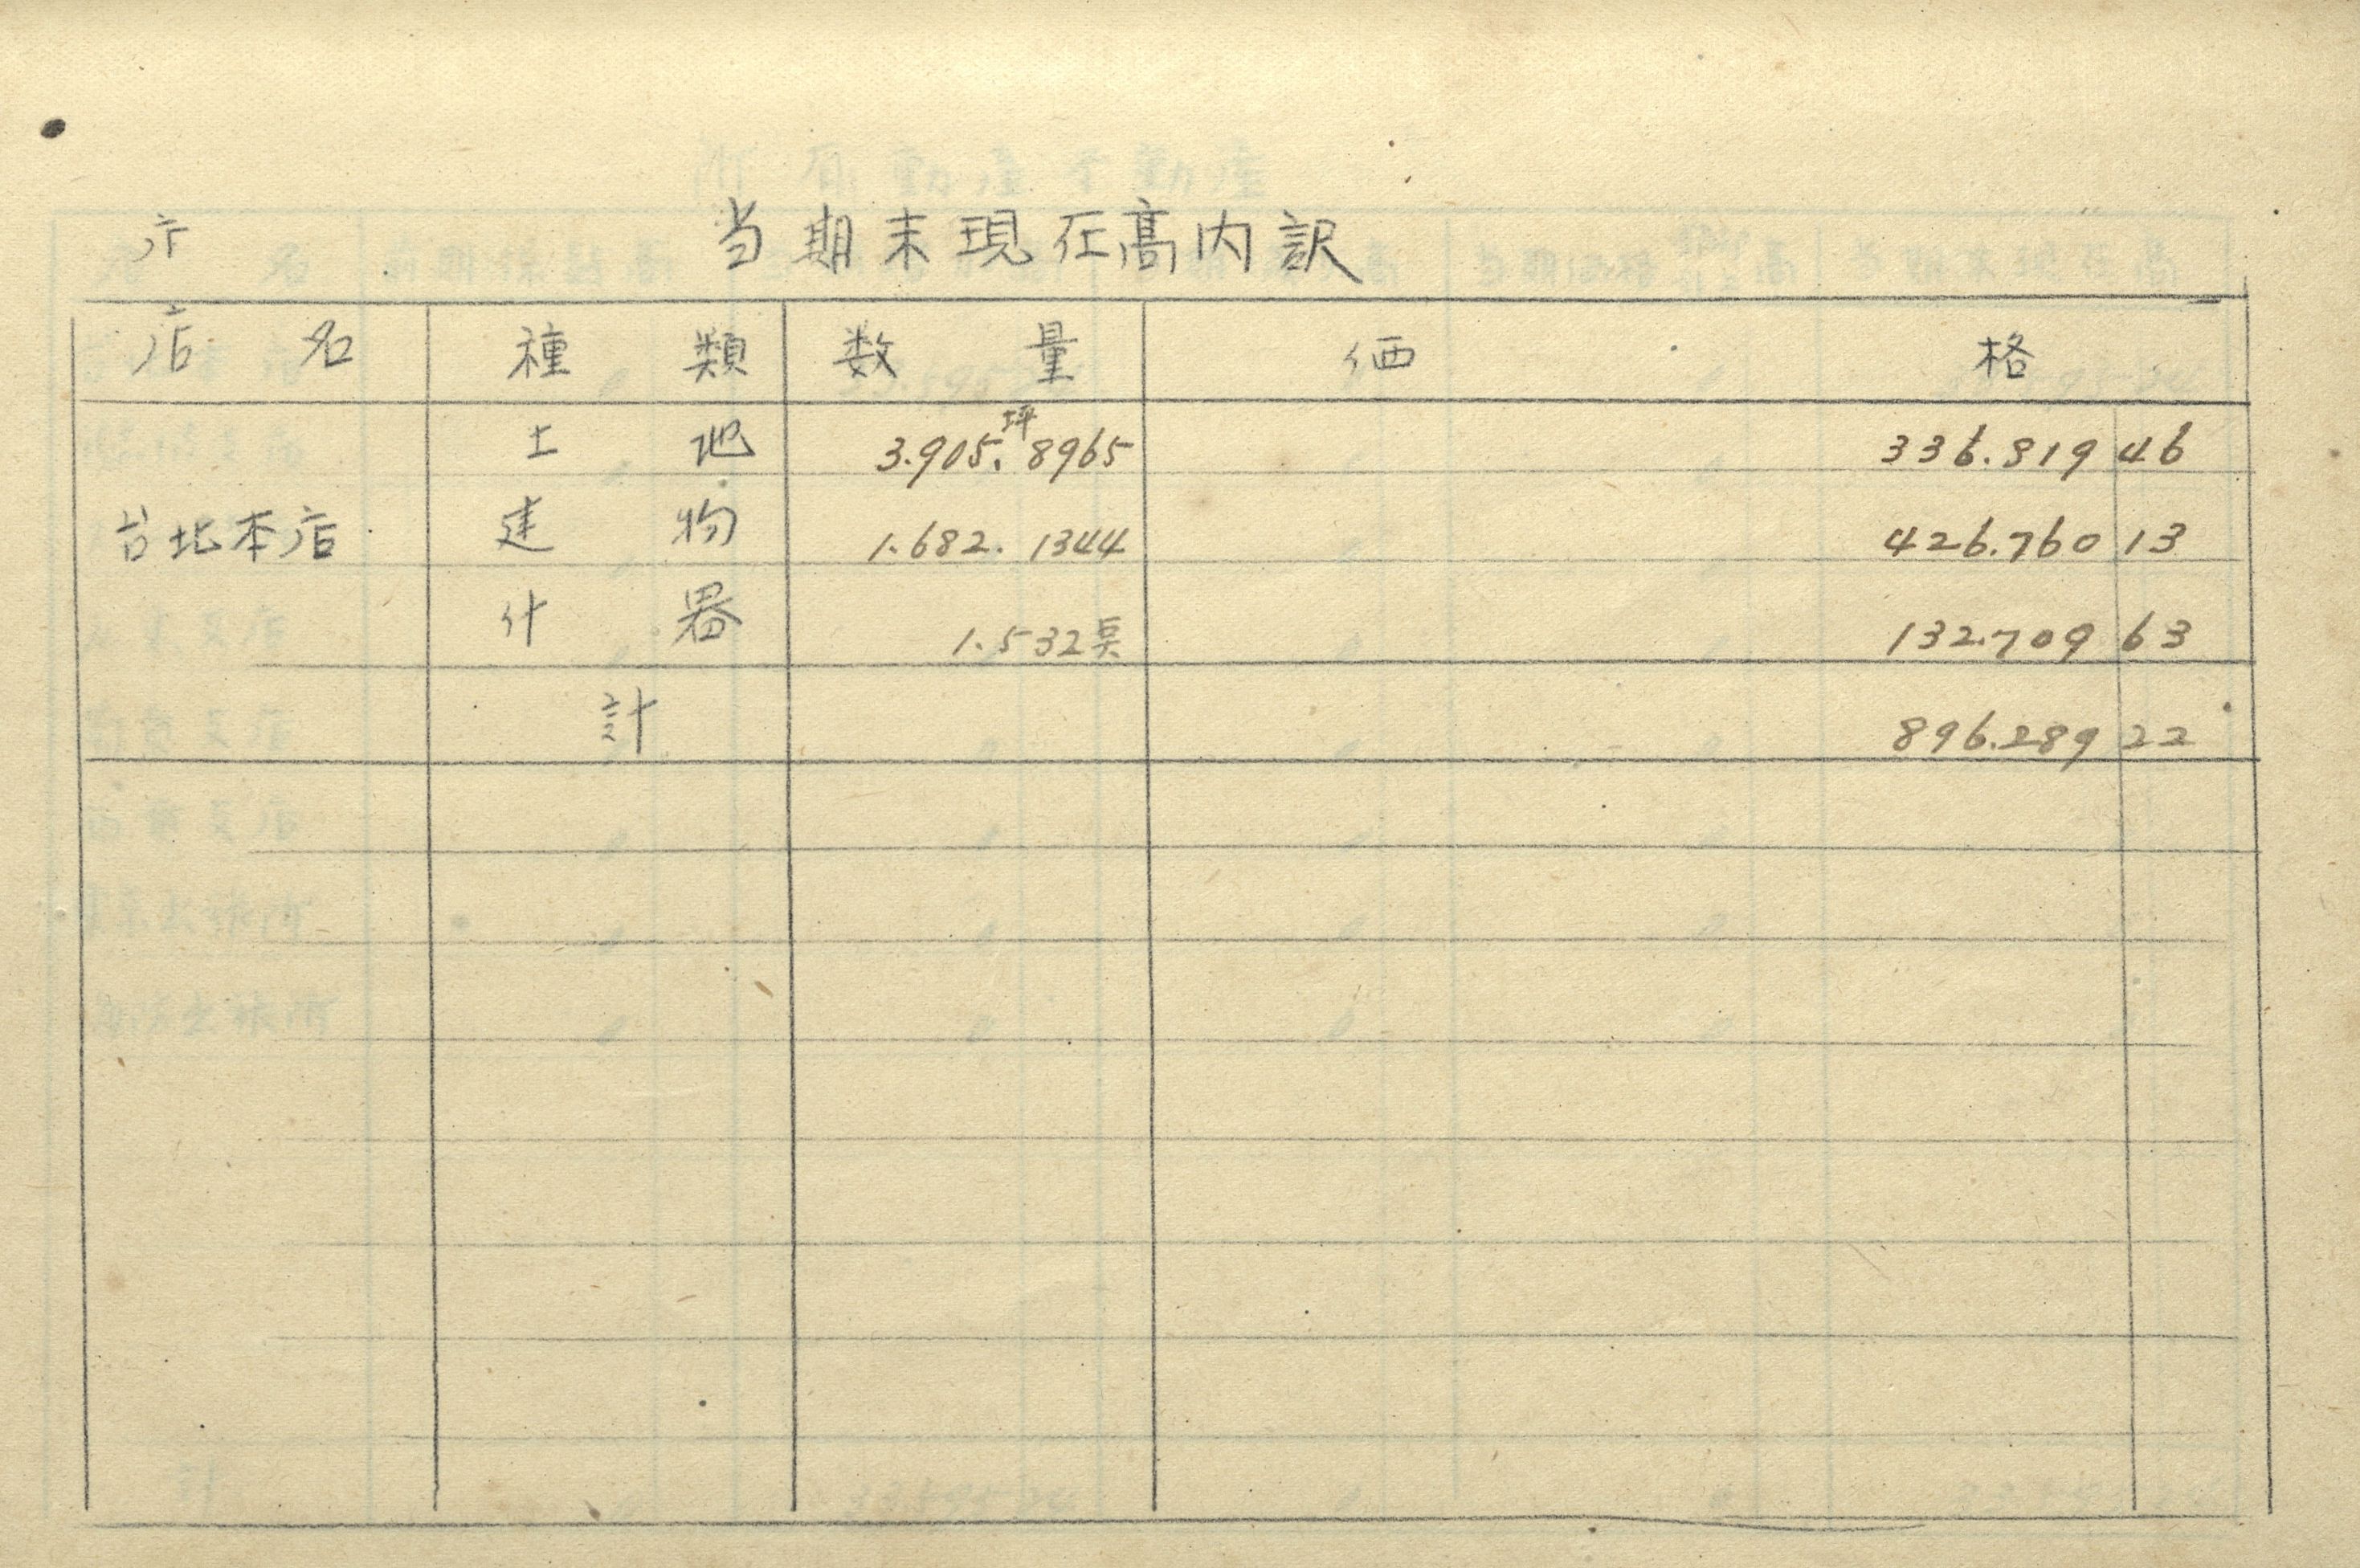 当期末現在高内訳
店名 種類 数量 価格
土地 3.905.坪8965 336.819 46
台北本店 建物 1.682.1344 426.760 13
什器 1.532点 132.709 63
計 896.289 22